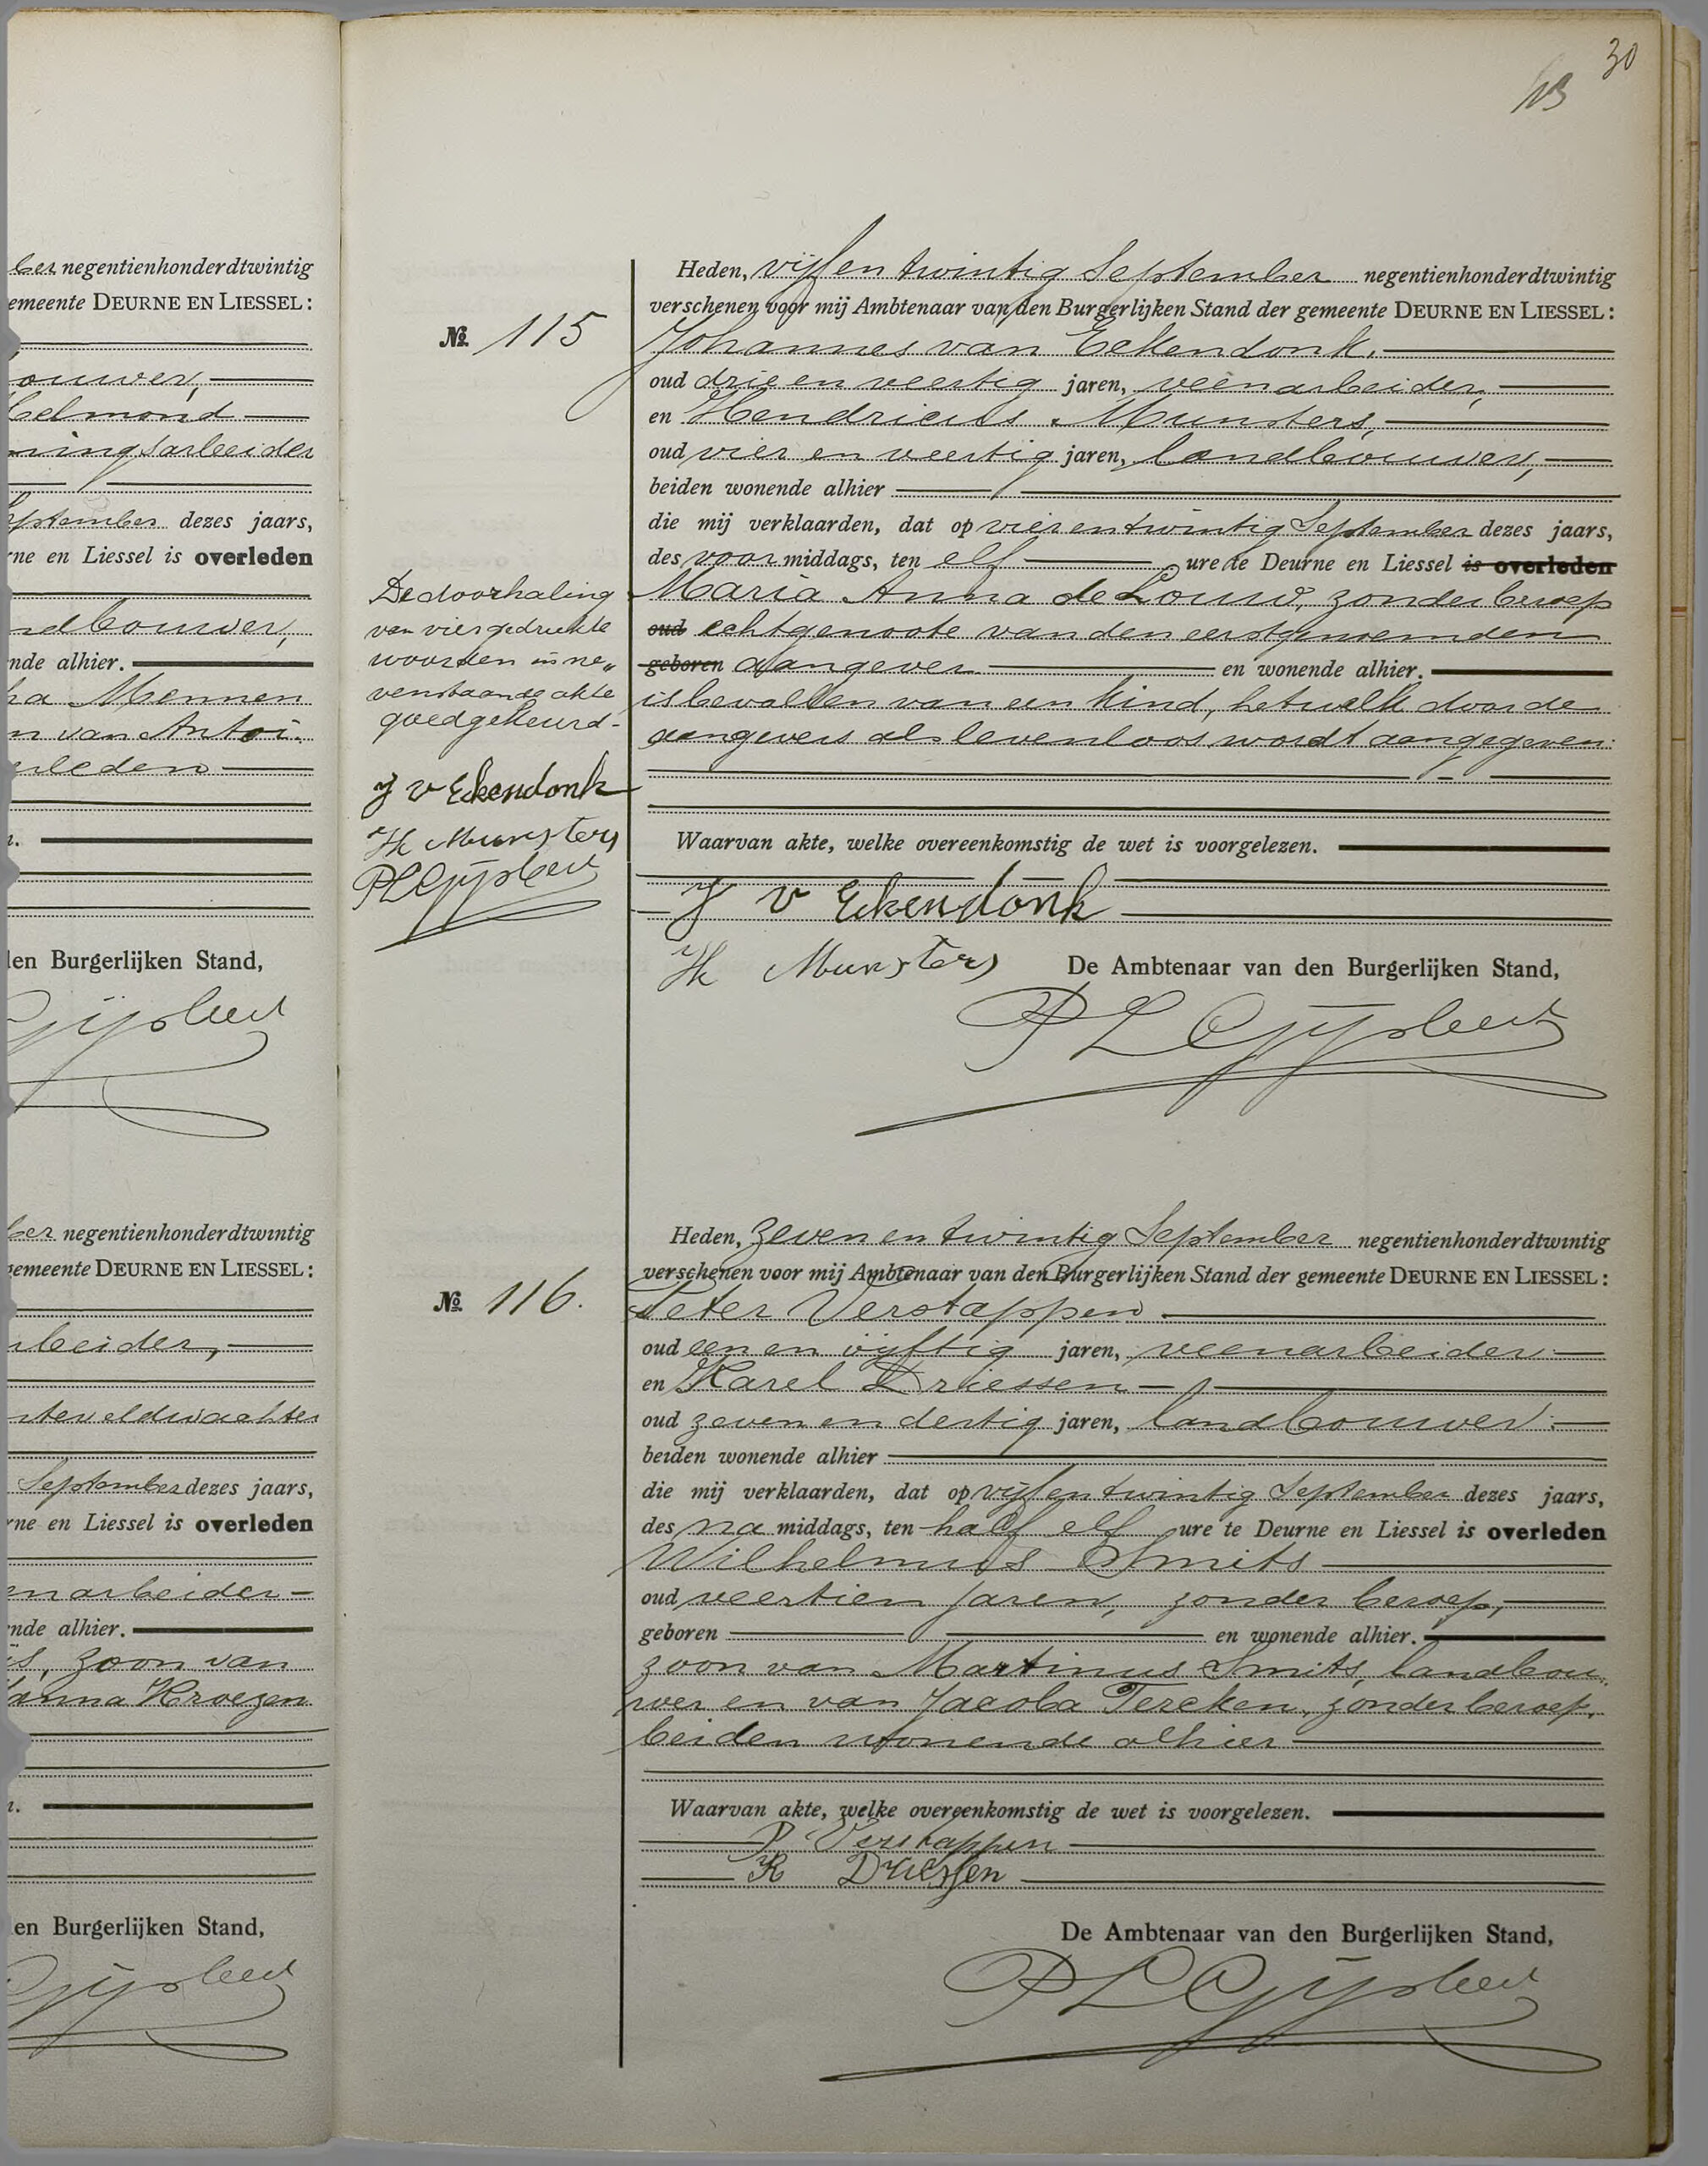 30
ber negentienhonderdtwintig
emeente DEURNE EN LIESSEL:
ouwer,
Helmond
ningsarbeider
eptember dezes jaars,
rne en Liessel is overleden
ndbouwer,
nde alhier.
na Mennen
n van Antoi-
erleden
n.
len Burgerlijken Stand,
Gijsbers
ber negentienhonderdtwintig
gemeente DEURNE EN LIESSEL:
rbeider,
nteveldwachter
September dezes jaars,
rne en Liessel is overleden
enarbeider
nde alhier.
is, zoon van
anna Kroezen
n.
len Burgerlijken Stand,
Gijsbers
No. 115
Heden, vijf en twintig September negentienhonderdtwintig
verschenen voor mij Ambtenaar van den Burgerlijken Stand der gemeente DEURNE EN LIESSEL:
Johannes van Eekendonk,
oud drie en veertig jaren, veenarbeider,
en Hendricus Munsters,
oud vier en veertig jaren, landbouwer,
beiden wonende alhier
die mij verklaarden, dat op vier en twintig September dezes jaars,
des voormiddags, ten elf ure te Deurne en Liessel is overleden
Maria Anna de Louw, zonder beroep
oud echtgenoote van den eerstgenoemden
geboren aangever en wonende alhier.
is bevallen van een kind, hetwelk door de
aangevers als levenloos wordt aangegeven.
De doorhaling
van vier gedrukte
woorden in ne„
venstaande akte
goedgekeurd.
J v Eekendonk
H Munsters
PLGijsbers
Waarvan akte, welke overeenkomstig de wet is voorgelezen.
J v Eekendonk
H Munsters
De Ambtenaar van den Burgerlijken Stand,
PLGijsbers
No. 116.
Heden, zeven en twintig September negentienhonderdtwintig
verschenen voor mij Ambtenaar van den Burgerlijken Stand der gemeente DEURNE EN LIESSEL:
Peter Verstappen
oud een en vijftig jaren, veenarbeider
en Karel Driessen
oud zeven en dertig jaren, landbouwer
beiden wonende alhier
die mij verklaarden, dat op vijf en twintig September dezes jaars,
des na middags, ten half elf ure te Deurne en Liessel is overleden
Wilhelmus Smits
oud veertien jaren, zonder beroep,
geboren en wonende alhier.
zoon van Martinus Smits, landbou„
wer en van Jacoba Tercken, zonder beroep,
beiden wonende alhier
Waarvan akte, welke overeenkomstig de wet is voorgelezen.
P Verstappen
K Driessen
De Ambtenaar van den Burgerlijken Stand,
PLGijsbers